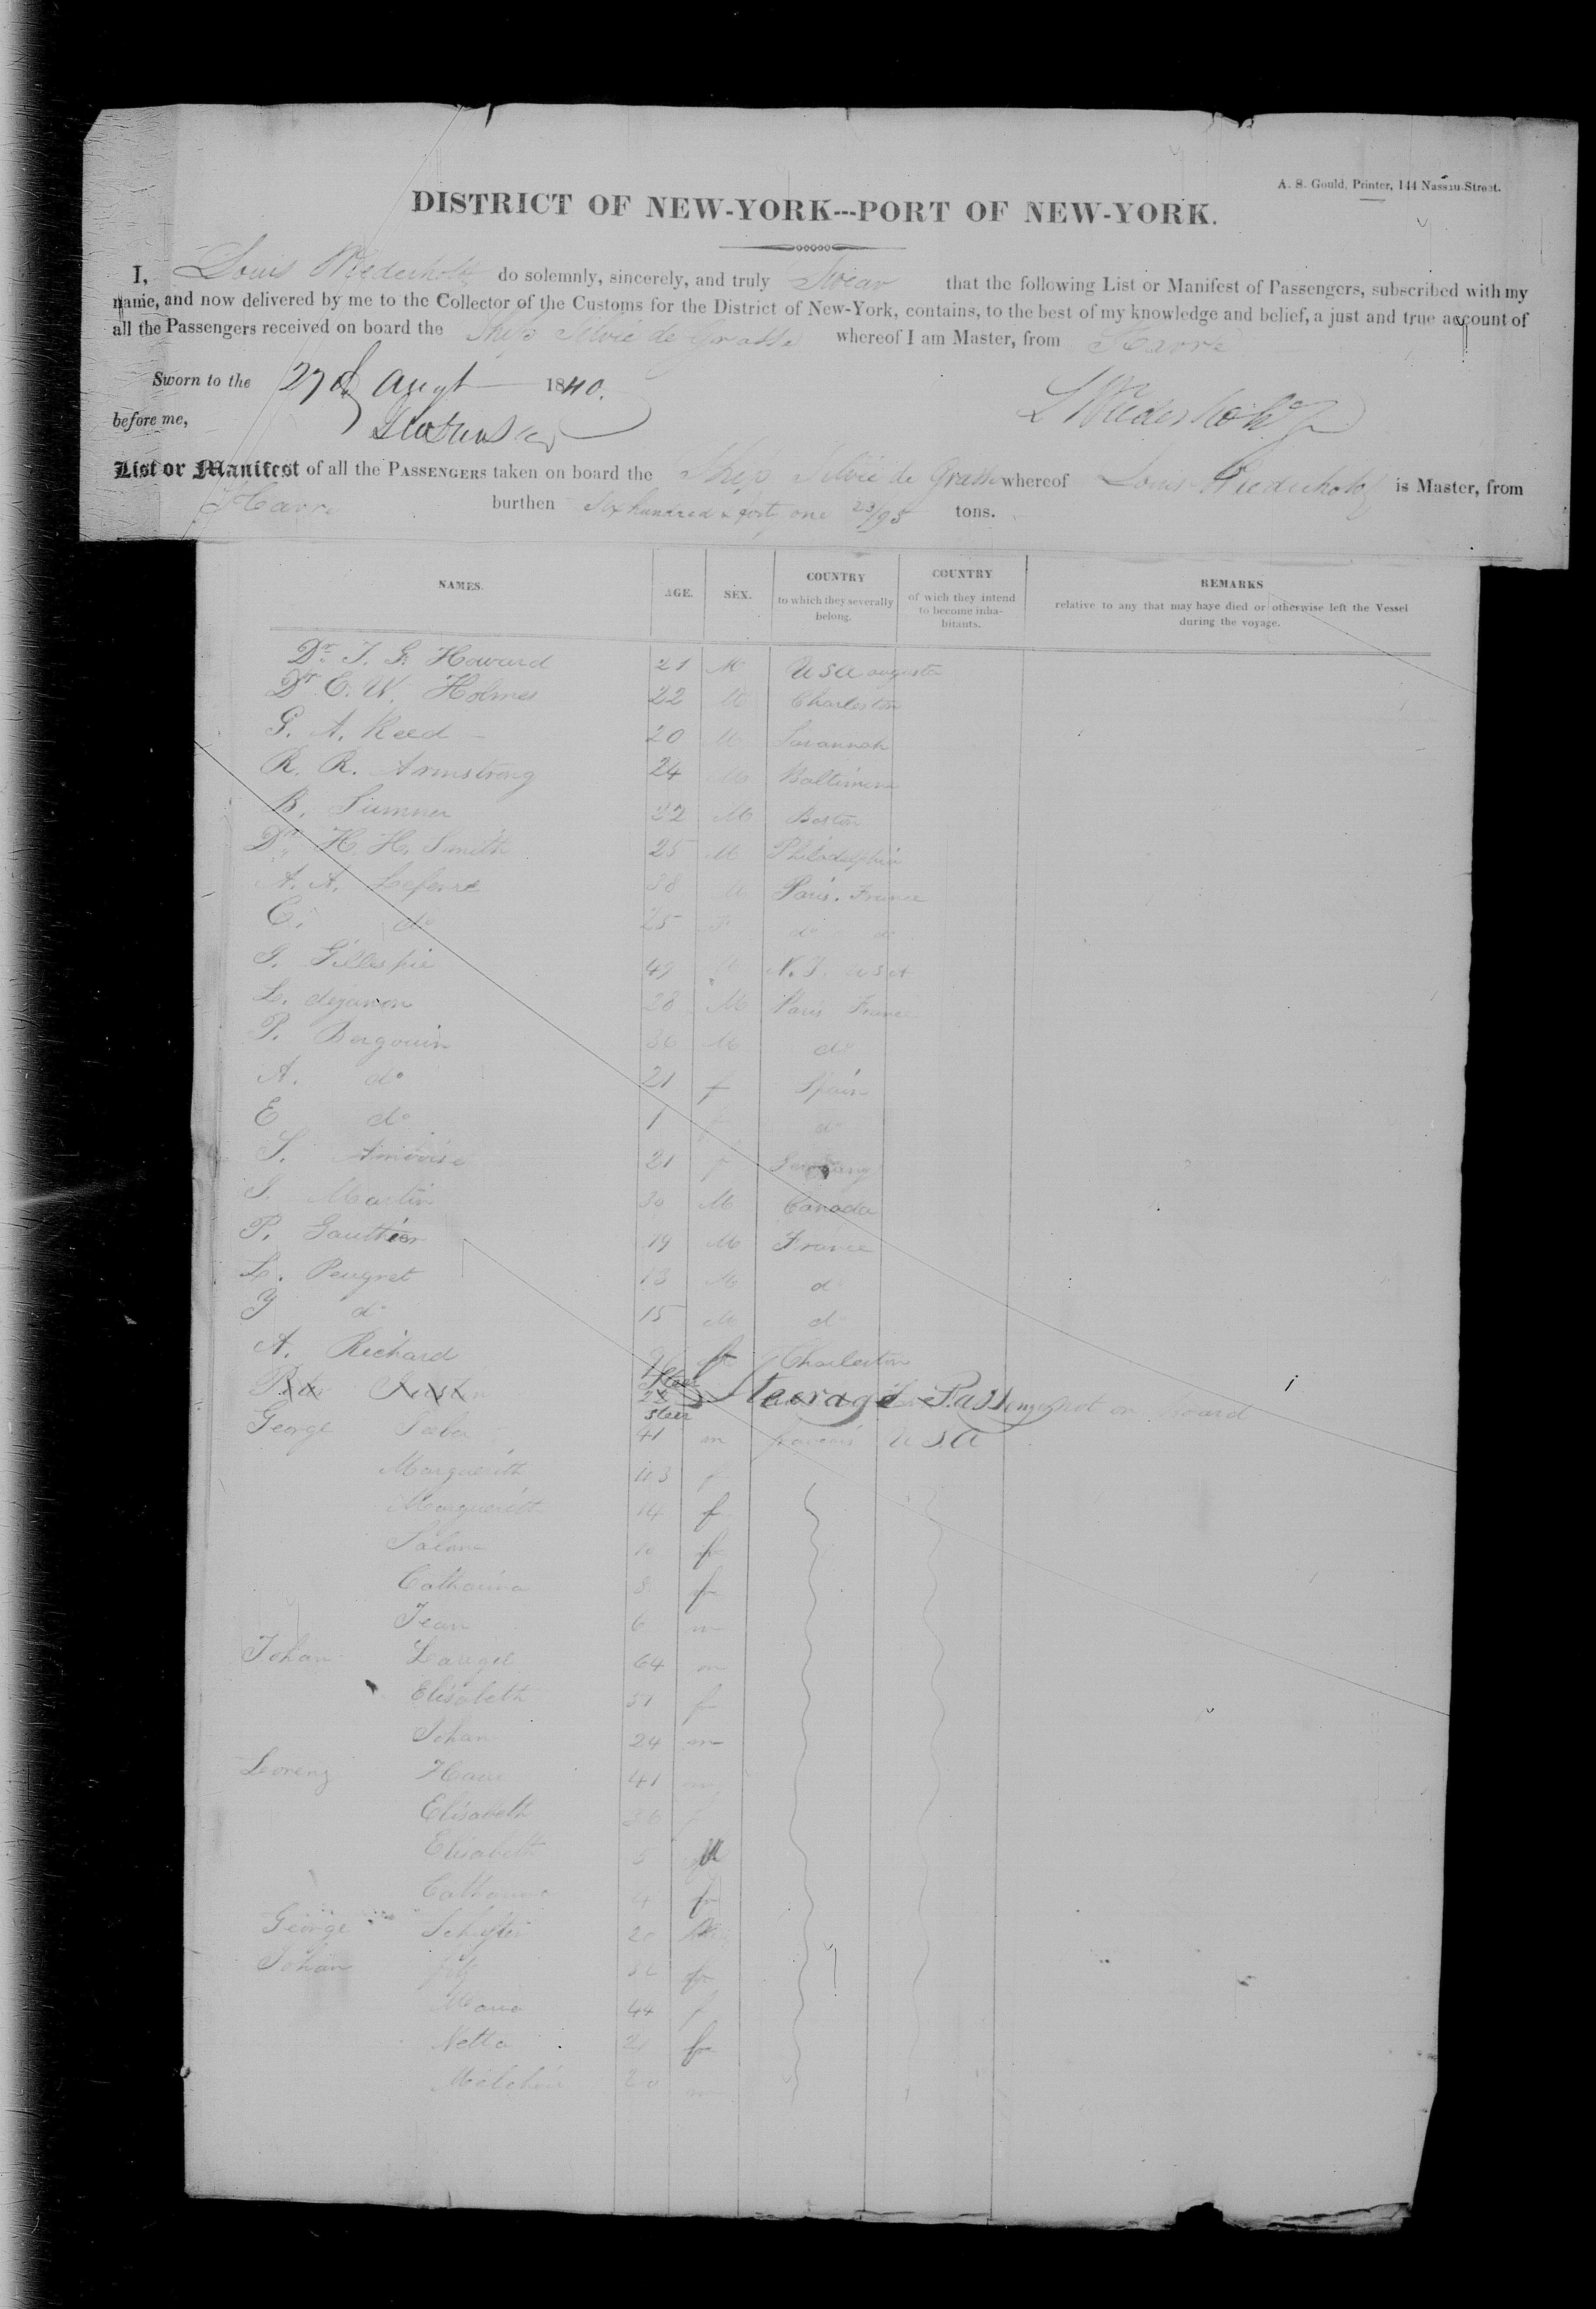 A. S. Gould, Printer, 144 Nassau-Street.
DISTRICT OF NEW-YORK---PORT OF NEW-YORK.
I, Louis Wiederholdt do solemnly, sincerely, and truly Swear that the following List or Manifest of Passengers, subscribed with my
name, and now delivered by me to the Collector of the Customs for the District of New-York, contains, to the best of my knowledge and belief, a just and true account of
all the Passengers received on board the Ship Silvie de Grasse whereof I am Master, from Havre
Sworn to the 27 of Augt 1840.
before me,
L Wiederholdt
List or Manifest of all the PASSENGERS taken on board the Ship Silvie de Grasse whereof Louis Wiederholdt is Master, from
Havre burthen Six hundred & forty one 23/95 tons.
NAMES. AGE. SEX. COUNTRY to which they severally belong. COUNTRY of wich they intend to become inhabitants. REMARKS relative to any that may have died or otherwise left the Vessel during the voyage.
Dr. T. G. Howard 21 M USA augusta
Dr E. W. Holmes 22 M Charleston
G. A. Reed 20 M Savannah
R. R. Armstrong 24 M Baltimore
B. Sumner 22 M Boston
Dr. H. H. Smith 25 M Philadelphia
A. A. Lefevre 38 M Paris. France
C. do 25 F do do
J. Gillespie 47 M N.J. USA
L. dejanon 28 M Paris France
P. Bergouin 36 M do
A. do 21 f Spain
E do 1 f do
S. 21 f
J. Martin 30 M Canada
P. Gauthier 19 M France
L. Peugnet 13 M do
J do 15 M do
A. Richard f Charleston
Steerage Passengers not on board
George Seeba 41 m francais USA
Marguerith 43 f
Marguerith 14 f
Salome 10 f
Catharina 8 f
Jean 6 m
Johan Laugel 64 m
Elisabeth 51 f
Johan 24 m
Lorenz 41 m
Elisabeth 36 f
Elisabeth 5
Catharina 4 f
George 20
Johan
Maria 44 f
Netta 21 f
Melchior 20 m